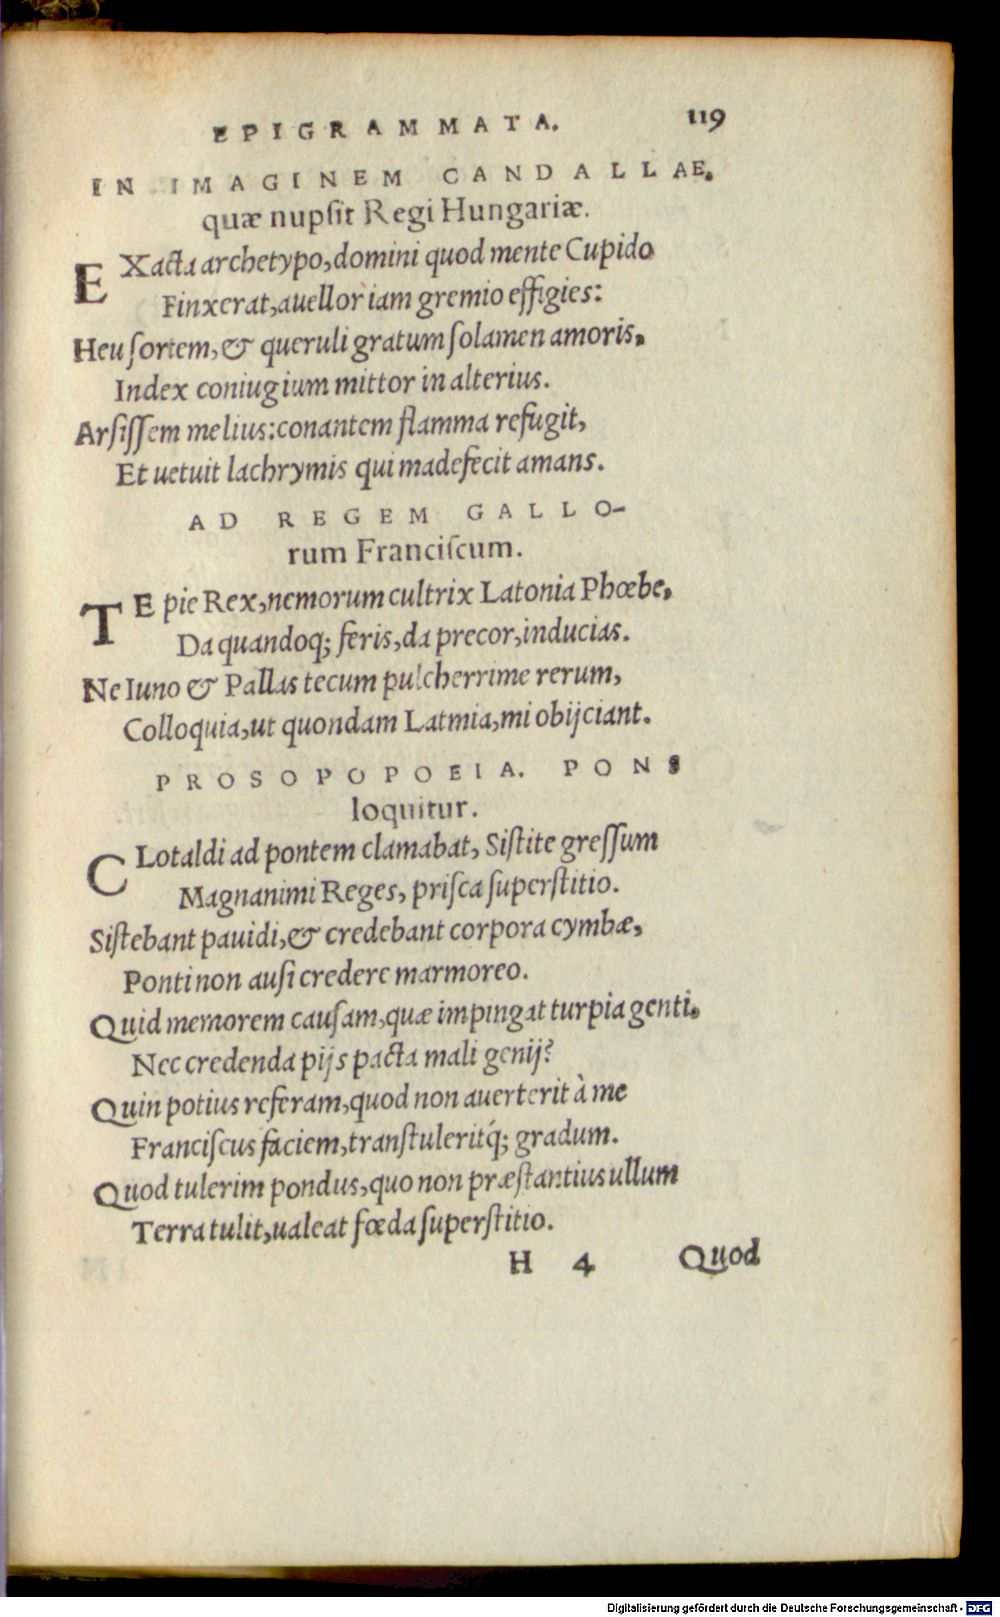 EPIGRAMMATA. 119
IN IMAGINEM CANDALLAE.
quæ nupſit Regi Hungariæ.
EXacta archetypo, domini quod mente Cupido
Finxerat, auellor iam gremio effigies:
Heu ſortem, & queruli gratum ſolamen amoris,
Index coniugium mittor in alterius.
Arſiſſem melius: conantem flamma refugit,
Et uetuit lachrymis qui madefecit amans.
AD REGEM GALLO-
rum Franciſcum.
TE pie Rex, nemorum cultrix Latonia Phœbe,
Da quandoq; feris, da precor, inducias.
Ne Iuno & Pallas tecum pulcherrime rerum,
Colloquia, ut quondam Latmia, mi obijciant.
PROSOPOPOEIA. PONS
loquitur.
CLotaldi ad pontem clamabat, Siſtite greſſum
Magnanimi Reges, priſca ſuperſtitio.
Siſtebant pauidi, & credebant corpora cymbæ,
Ponti non auſi credere marmoreo.
Quid memorem cauſam, quæ impingat turpia genti,
Nec credenda pijs pacta mali genij?
Quin potius referam, quod non auerterit à me
Franciſcus faciem, tranſtuleritq́; gradum.
Quod tulerim pondus, quo non præſtantius ullum
Terra tulit, ualeat fœda ſuperſtitio.
H 4 Quod
Digitalisierung gefördert durch die Deutsche Forschungsgemeinschaft - DFG